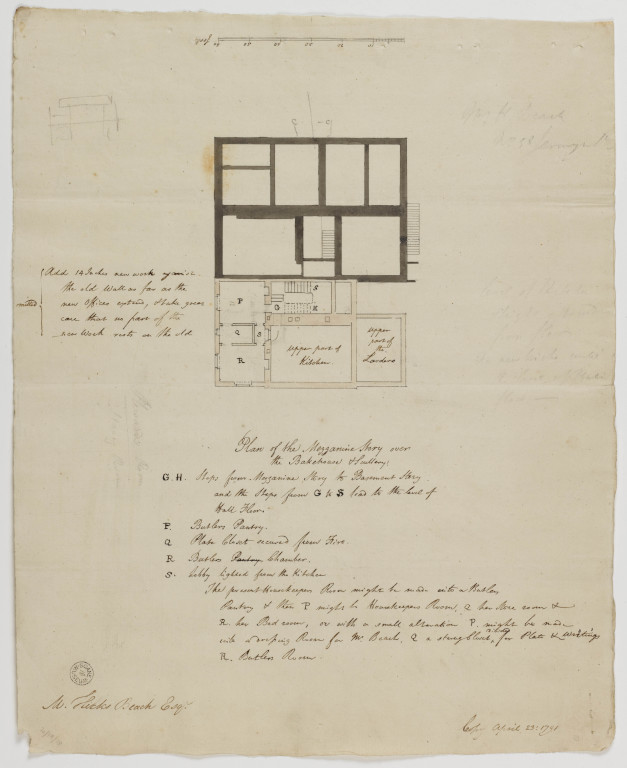 P
G
S
Q
S
R
Upper part of
Kitchen
Upper
part of
the
Larders
Add 14 Inches new work against
the old Wall as far as the
new Offices extend, & take great
care that no part of the
new Work rests on the old
Plan of the Mezzanine Story over
the Bakehouse & Scullery.
G.H. Steps from Mezzanine Story to Basement Story
and the Steps from G to S lead to the level of
Hall Floor.
P. Butlers Pantry.
Q Plate Closet secured from Fire.
R Butlers Pantry Chamber.
S. Lobby lighted from the Kitchen
The present Housekeepers Room might be made into a Butlers
Pantry & then P might be Housekeepers Room, Q her Store room &
R her Bed room, or with a small alteration P. might be made
into a Room for Mr Beach, Q a strong Closet for Plate & writings
R. Butlers Room.
M. Hicks Beach Esqr.
Copy April 23: 1791